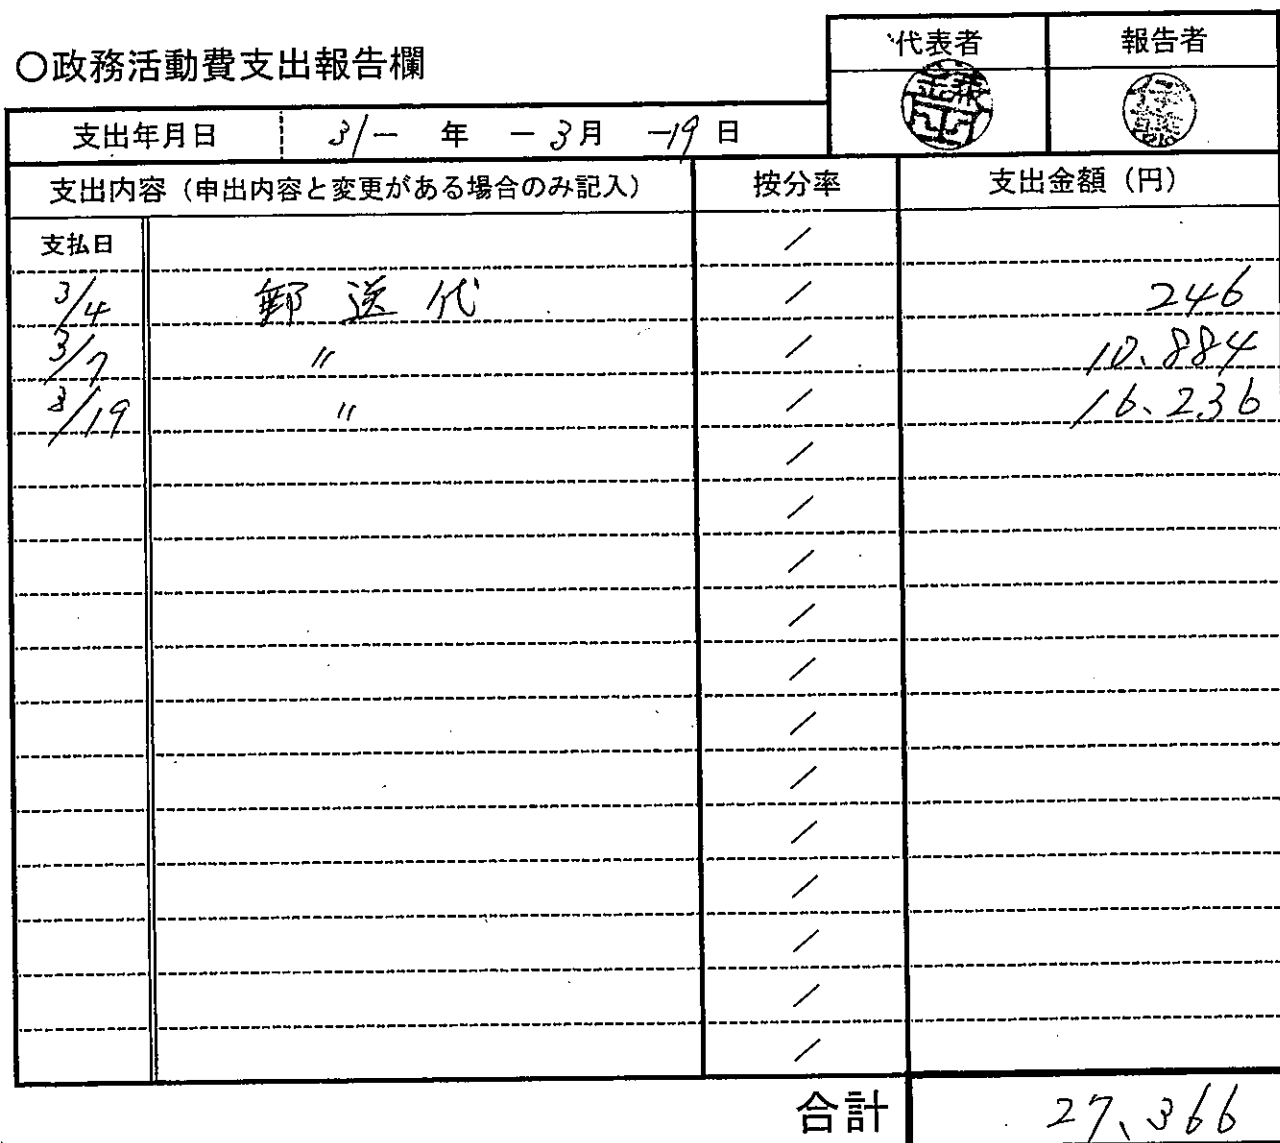 代表者 報告者
○政務活動費支出報告欄
支出年月日 31- 年 -3月 -19日
支出内容（申出内容と変更がある場合のみ記入） 按分率 支出金額（円）
支払日 /
3/4 郵送代 / 246
3/7 〃 / 10、884
3/19 〃 / 16、236
/
/
/
/
/
/
/
/
/
/
/
/
合計 27、366